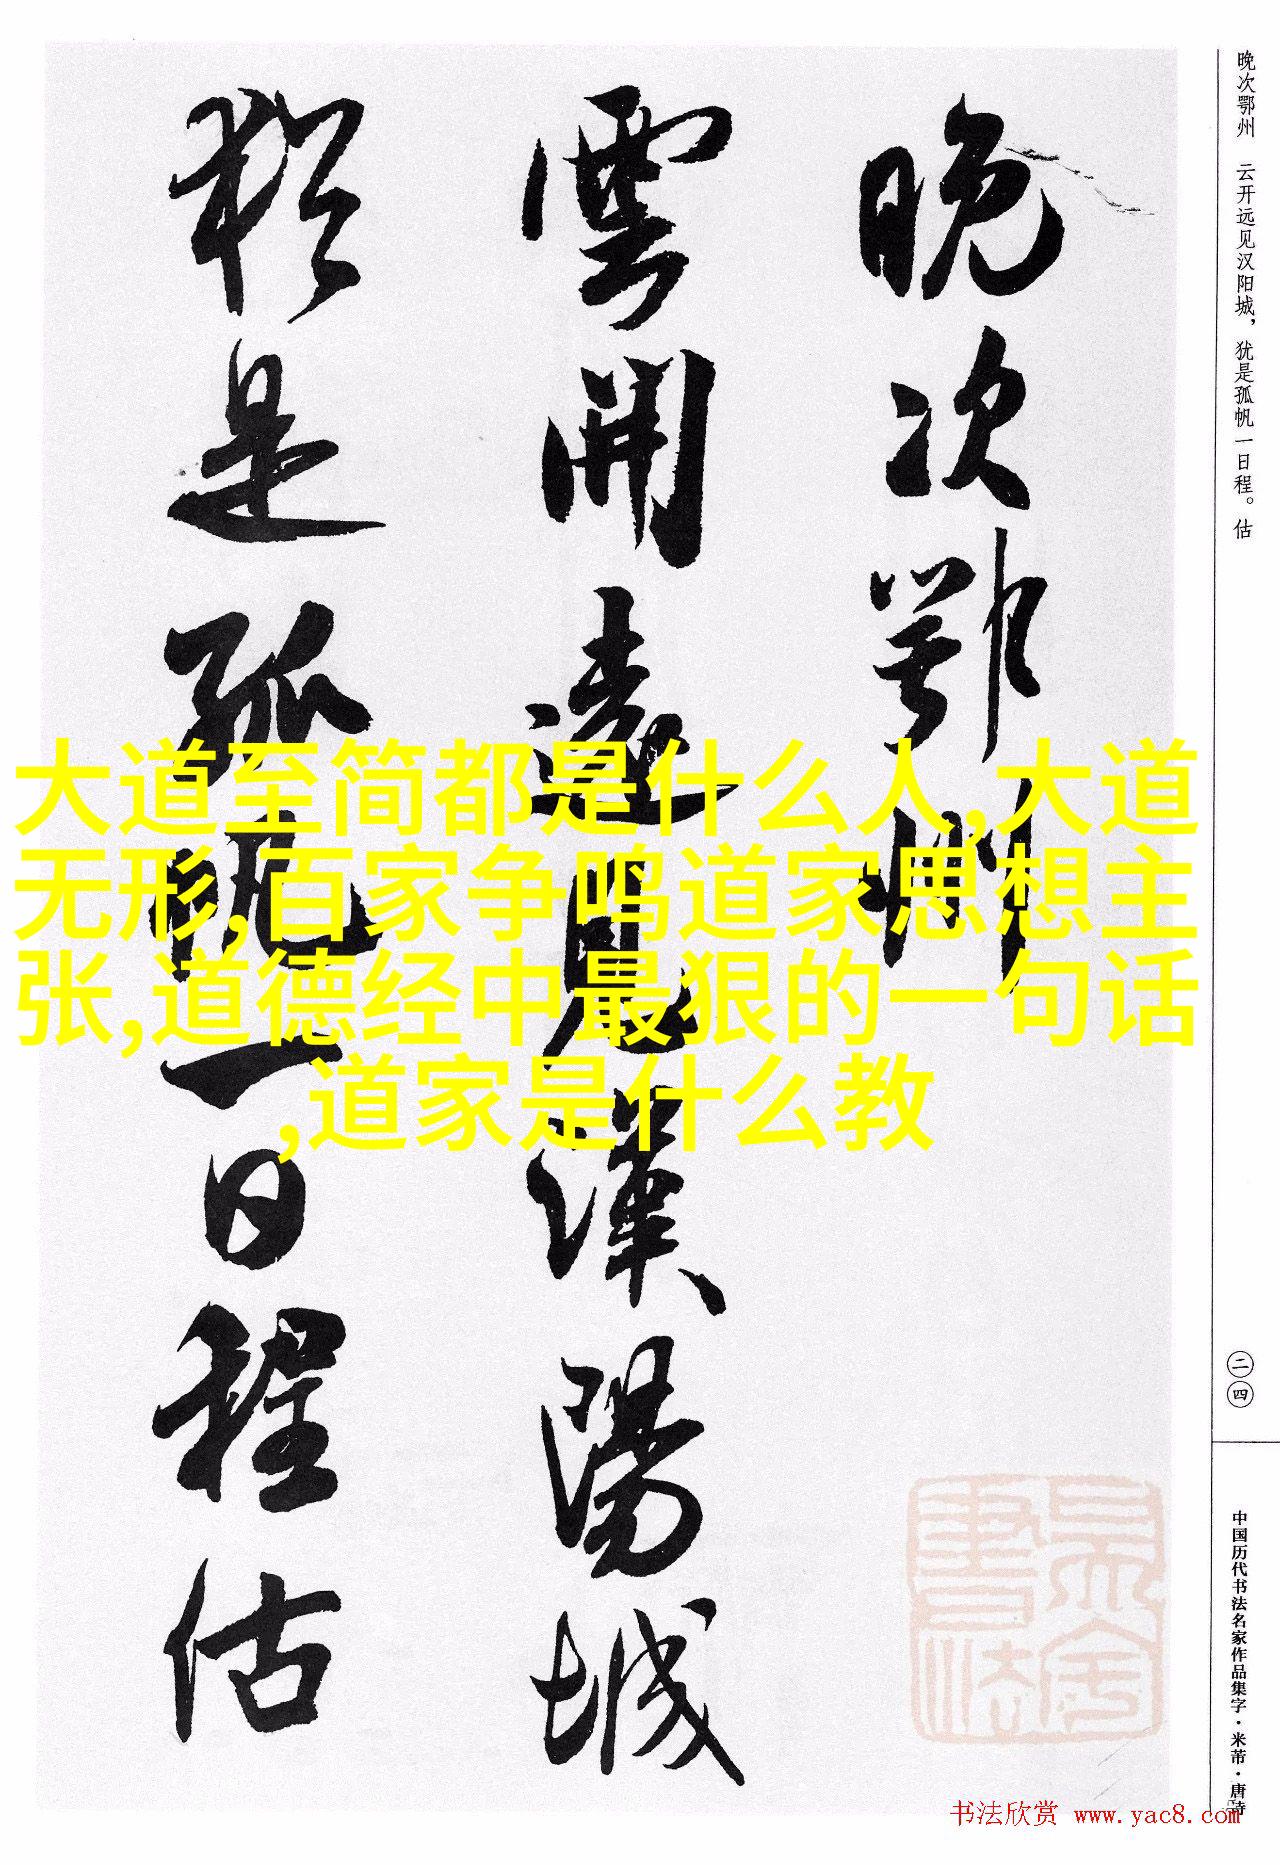 晚次鄂州 云开远见汉阳城，犹是孤帆一日程。估
晚次鄂州
雲開遠見漢陽城
猶是孤帆一日程估
大道至简都是什么人,大道
无形,百家争鸣道家思想主
张,道德经中最狠的一句话
,道家是什么教
二四
中国历代书法名家作品集字·米芾·唐诗
书法欣赏 www.yac8.com